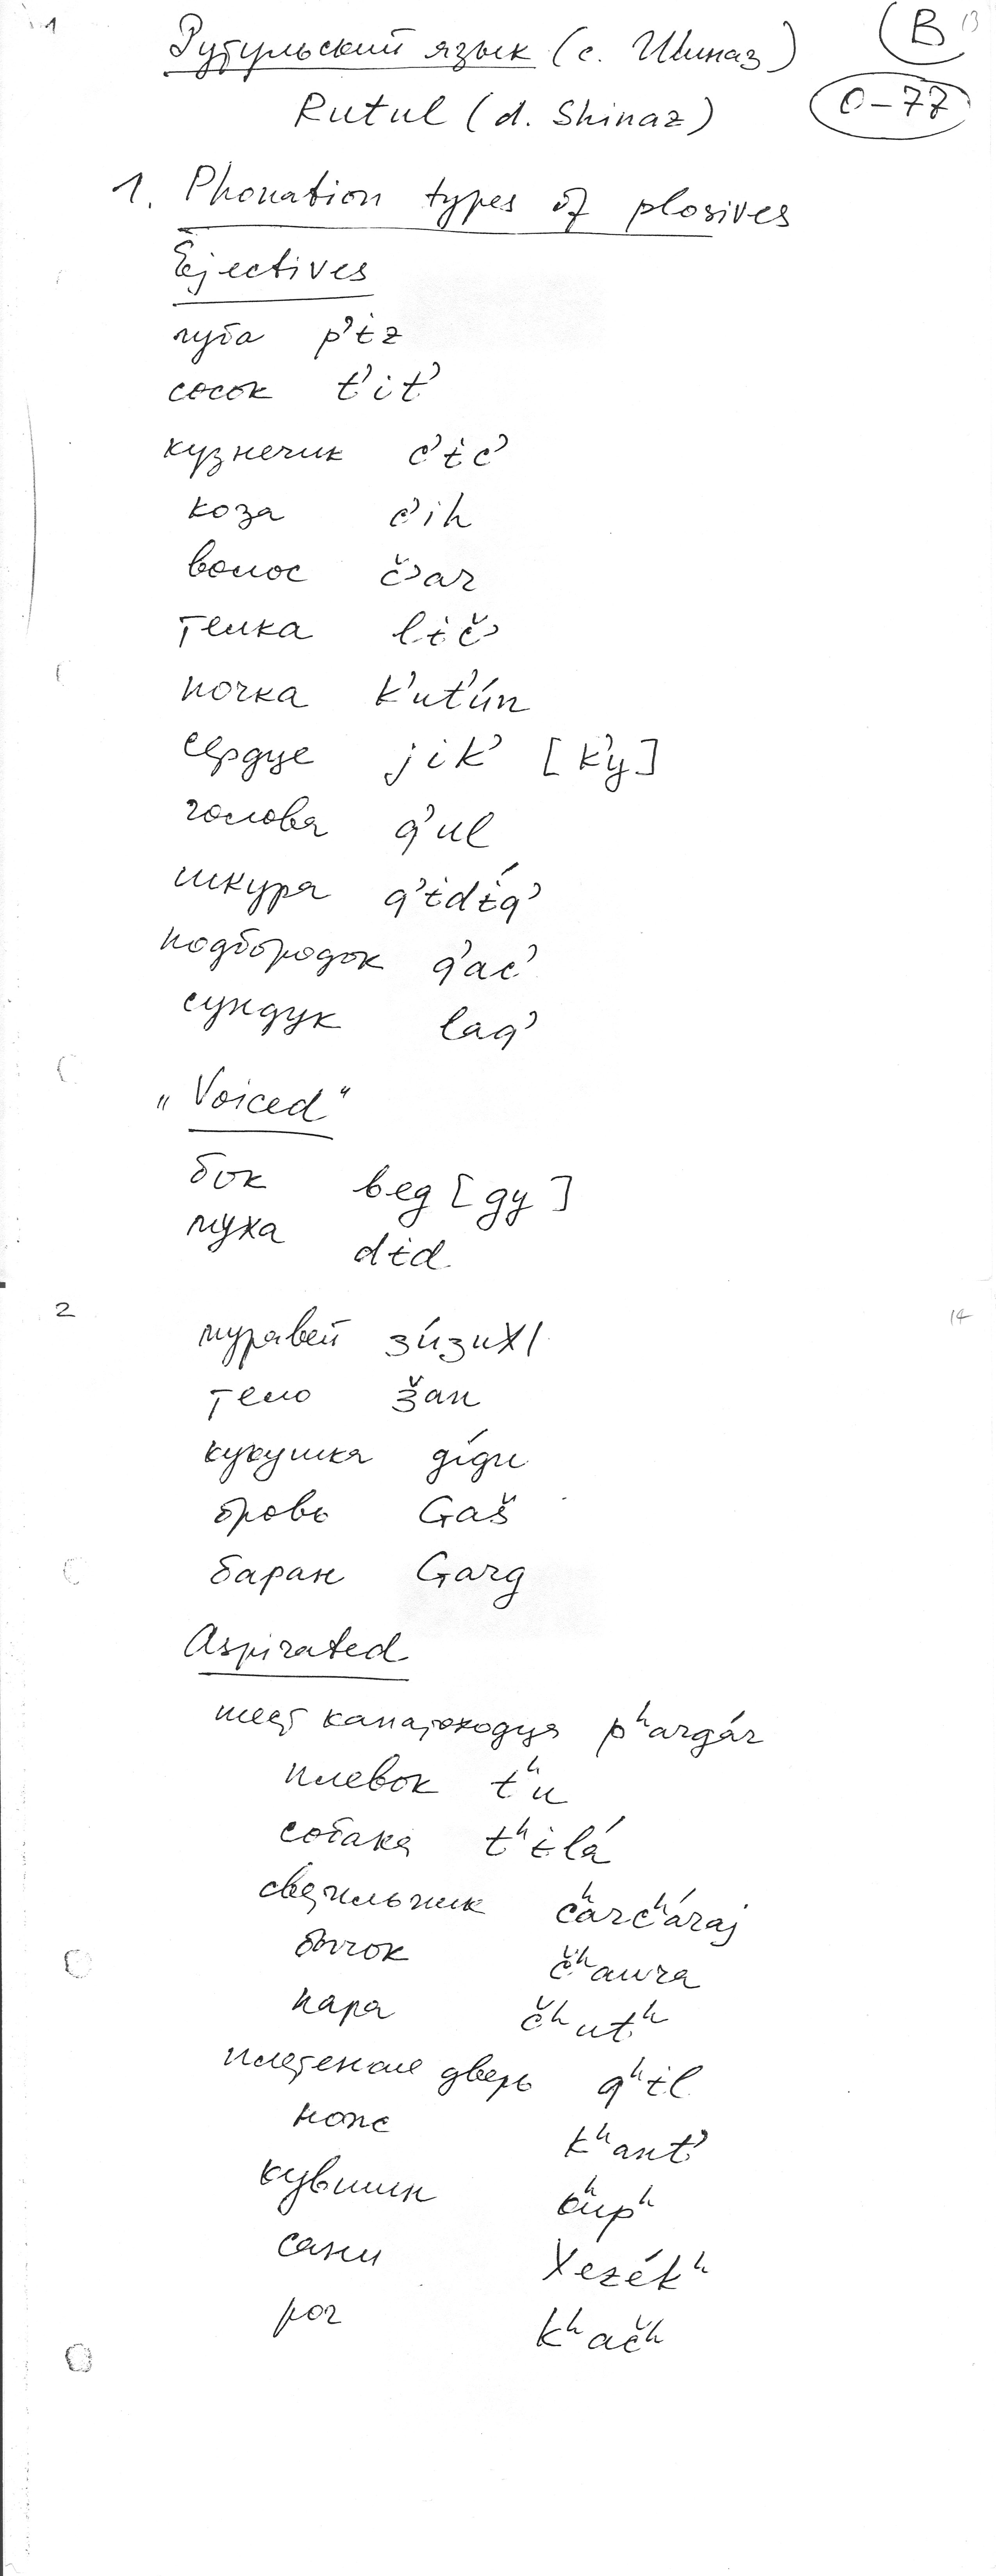 1
Рутульский язык (с. Шиназ)
B 13
Rutul (d. Shinaz)
0-77
1. Phonation types of plosives
Ejectives
губа p’ɨz
сосок t’it’
кузнечик c’ɨc’
коза c’ih
волос č’ar
телка lɨč’
почка k’ut’ún
сердце jik’ [k’y]
голова q’ul
шкура q’ɨdɨ́q’
подбородок q’ac’
сундук laq’
„Voiced“
бок beg [gy]
муха dɨd
2
14
муравей ʒúʒuXI
тело ǯan
кукушка gígu
бровь Gaš
баран Garg
Aspirated
шест канатоходца pʰargár
плевок tʰu
собака tʰɨlá
светильник cʰarcʰáraj
бычок čʰaura
пара čʰutʰ
плетеная дверь qʰɨl
нож kʰant’
кувшин cʰupʰ
сани Xezékʰ
рог kʰačʰ